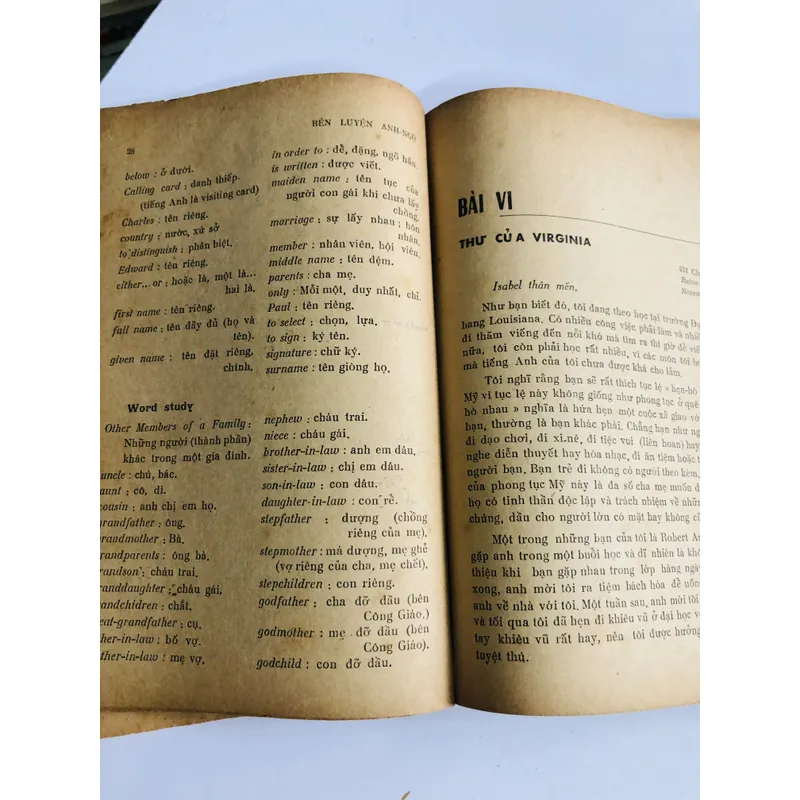 28
RÈN LUYỆN ANH-NGỮ
below : ở dưới.
Calling card : danh thiếp.
(tiếng Anh là visiting card)
Charles : tên riêng.
country : nước, xứ sở
to distinguish : phân biệt.
Edward : tên riêng.
either... or : hoặc là, một là...
hai là.
first name : tên riêng.
full name : tên đầy đủ (họ và
tên).
given name : tên đặt riêng,
chính.
Word study
Other Members of a Family :
Những người (thành phần)
khác trong một gia đình.
uncle : chú, bác.
aunt : cô, dì.
cousin : anh chị em họ.
grandfather : ông.
grandmother : Bà.
grandparents : ông bà.
grandson : cháu trai.
granddaughter : cháu gái.
grandchidren : chắt.
great-grandfather : cụ.
father-in-law : bố vợ.
mother-in-law : mẹ vợ.
in order to : để, đặng, ngõ hầu.
is written : được viết.
maiden name : tên tục của
người con gái khi chưa lấy
chồng.
marriage : sự lấy nhau ; hôn
nhân.
member : nhân viên, hội viên.
middle name : tên đệm.
parents : cha mẹ.
only : Mỗi một, duy nhất, chỉ.
Paul : tên riêng.
to select : chọn, lựa.
to sign : ký tên.
signature : chữ ký.
surname : tên giòng họ.
nephew : cháu trai.
niece : cháu gái.
brother-in-law : anh em dâu.
sister-in-law : chị em dâu.
son-in-law : con dâu.
daughter-in-law : con rể.
stepfather : dượng (chồng
riêng của mẹ).
stepmother : má dượng, mẹ ghẻ
(vợ riêng của cha, mẹ chết).
stepchildren : con riêng.
godfather : cha đỡ đầu (bên
Công Giáo.)
godmother : mẹ đỡ đầu (bên
Công Giáo).
godchild : con đỡ đầu.
BÀI VI
THƯ CỦA VIRGINIA
Isabel thân mến,
Như bạn biết đó, tôi đang theo học tại trường Đạ
bang Louisiana. Có nhiều công việc phải làm và nhiề
đi thăm viếng đến nỗi khó mà tìm ra thì giờ để viế
nữa, tôi còn phải học rất nhiều, vì các môn tôi họ
mà tiếng Anh của tôi chưa được khá cho lắm.
Tôi nghĩ rằng bạn sẽ rất thích tục lệ « hẹn-hò
Mỹ vì tục lệ này không giống như phong tục ở quê
hò nhau » nghĩa là hứa hẹn một cuộc xã giao với
bạn, thường là bạn khác phái. Chẳng hạn như ng
đi dạo chơi, đi xi.nê, đi tiệc vui (liên hoan) hay
nghe diễn thuyết hay hòa nhạc, đi ăn tiệm hoặc t
người bạn. Bạn trẻ đi không có người theo kèm,
của phong tục Mỹ này là đa số cha mẹ muốn đ
họ có tinh thần độc lập và trách nhiệm về nhữn
chúng, dầu cho người lớn có mặt hay không cũ
Một trong những bạn của tôi là Robert An
gặp anh trong một buổi học và dĩ nhiên là khô
thiệu khi bạn gặp nhau trong lớp hàng ngày
xong, anh mời tôi ra tiệm bách hóa để uốn
anh về nhà với tôi. Một tuần sau, anh mời tôi
và tối qua tôi đã hẹn đi khiêu vũ ở đại học vớ
tay khiêu vũ rất hay, nên tôi được hưởng
tuyệt thú.